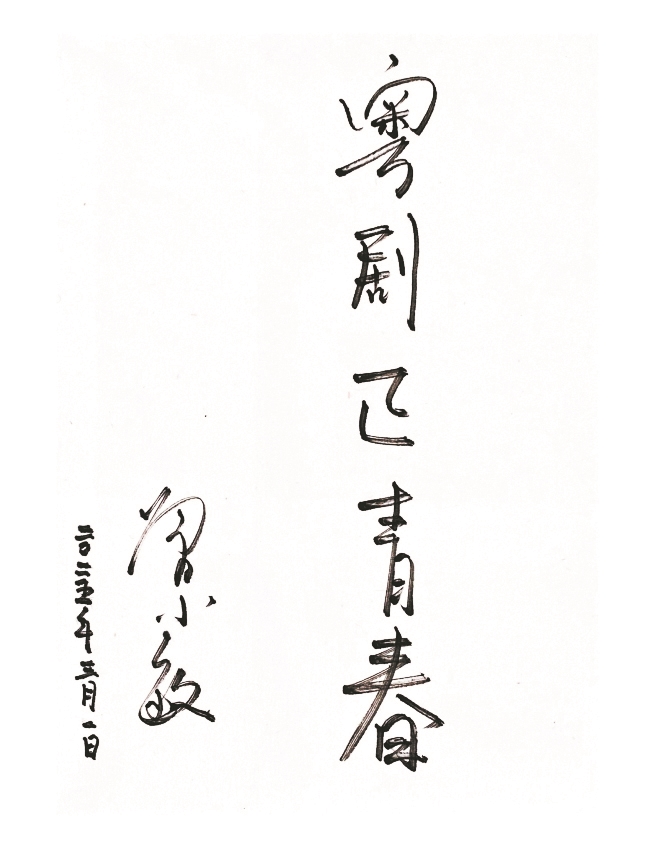 粤剧正青春
曾小敏
二〇二五年三月一日